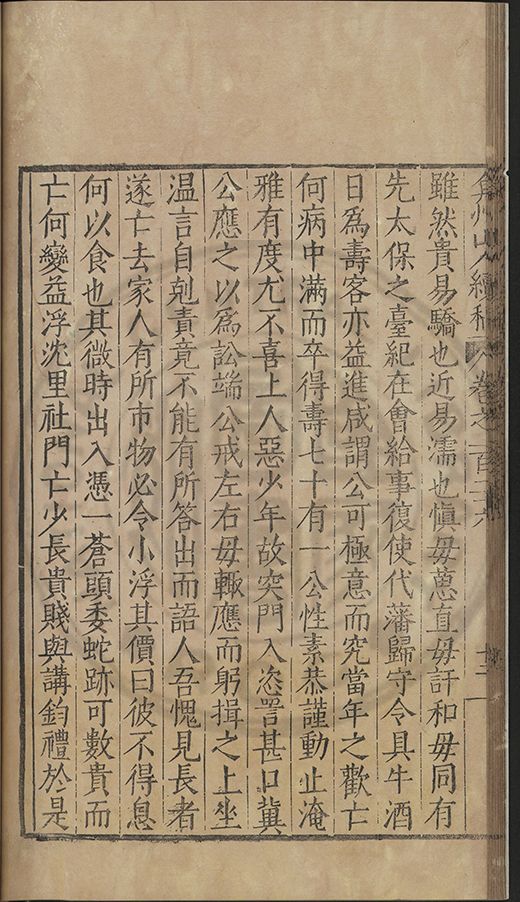 弇州山人續稿 卷之一百二十六 十二
雖然貴易驕也近易濡也愼毋蒽直毋訐和毋同有
先太保之臺紀在會給事復使代藩歸守令具牛酒
日爲壽客亦益進咸謂公可極意而究當年之歡亡
何病中滿而卒得壽七十有一公性素恭謹動止淹
雅有度尤不喜上人惡少年故突門入恣詈甚口冀
公應之以爲訟端公戒左右毋輙應而躬揖之上坐
温言自剋責竟不能有所答出而語人吾愧見長者
遂亡去家人有所市物必令小浮其價曰彼不得息
何以食也其微時出入憑一蒼頭委蛇跡可數貴而
亡何變益浮沈里社門亡少長貴賤與講鈞禮於是